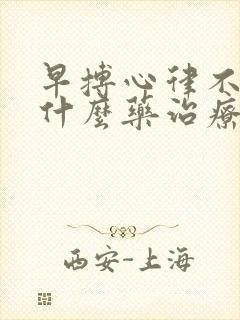 早搏心律不
什麼藥治療
西安-上海